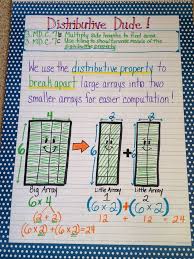 Distributive Dude!
3.MD.C.7b Multiply side lengths to find area.
3.MD.C.7c Use tiling to show
distributive property
We use the distributive property to
break apart large arrays into two
smaller arrays for easier computation!
4
2
2
6
=
+
Big Array
Little Array
Little Array
(6x4)
(6x2) + (6x2)
(2+2)
12 + 12 = 24
(6x2)+(6x2)=24